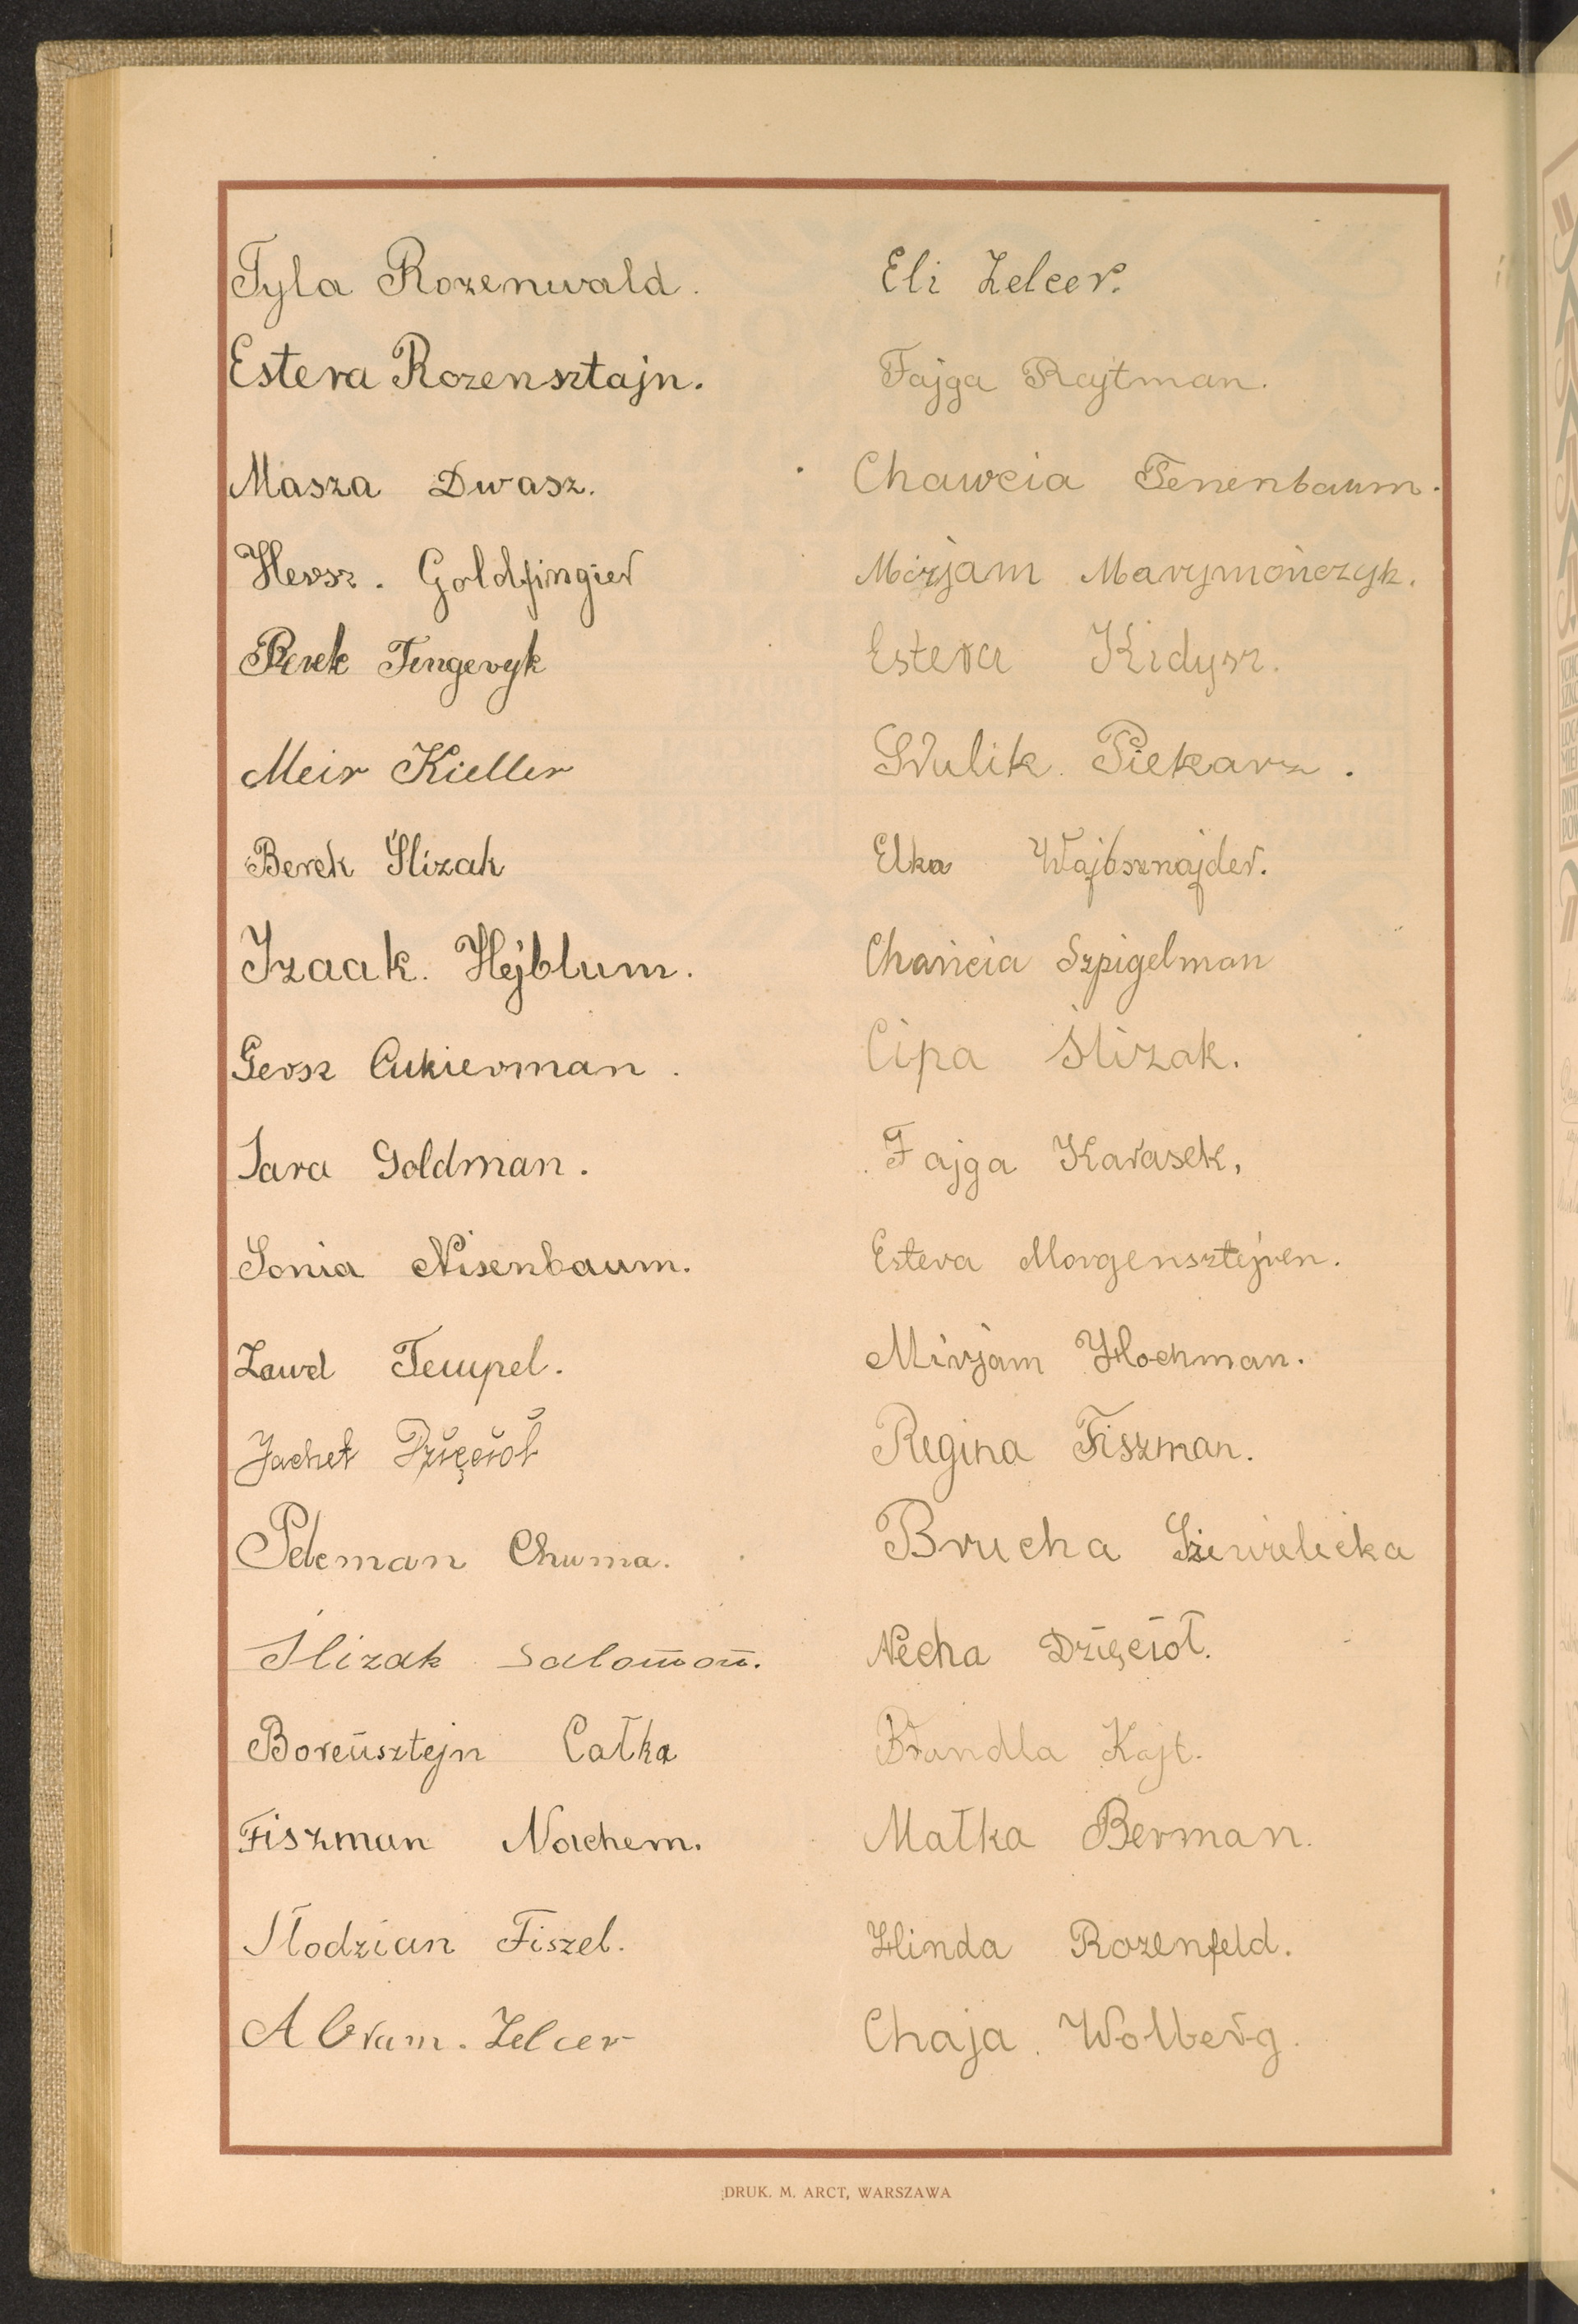 Tyla Rozenwald.
Estera Rozensztajn.
Masza Dwasz.
Hersz. Goldfingier
Berek Fingeryk
Meir Kieller
Berek Ślizak
Izaak. Hejblum.
Gersz Cukierman.
Sara Goldman.
Sonia Nisenbaum.
Tempel.
Jachet Dzięcioł
Pelcman Chuma.
Ślizak Salomon.
Borensztejn Całka
Fiszman Nachem.
Słodzian Fiszel.
Abram. Zelcer
Eli Zelcer.
Fajga Rajtman.
Chawcia Tenenbaum.
Mirjam Marymończyk.
Estera Kidysz.
Srulik. Piekarz.
Elka Wajbsznajder.
Chańcia Szpigelman
Cipa Ślizak.
Fajga Karasek,
Estera Morgensztejren.
Mirjam Hochman.
Regina Fiszman.
Brucha
Necha Dzięcioł.
Brandla Kajt.
Małka Berman.
Hinda Rozenfeld.
Chaja. Wolberg.
DRUK. M. ARCT, WARSZAWA